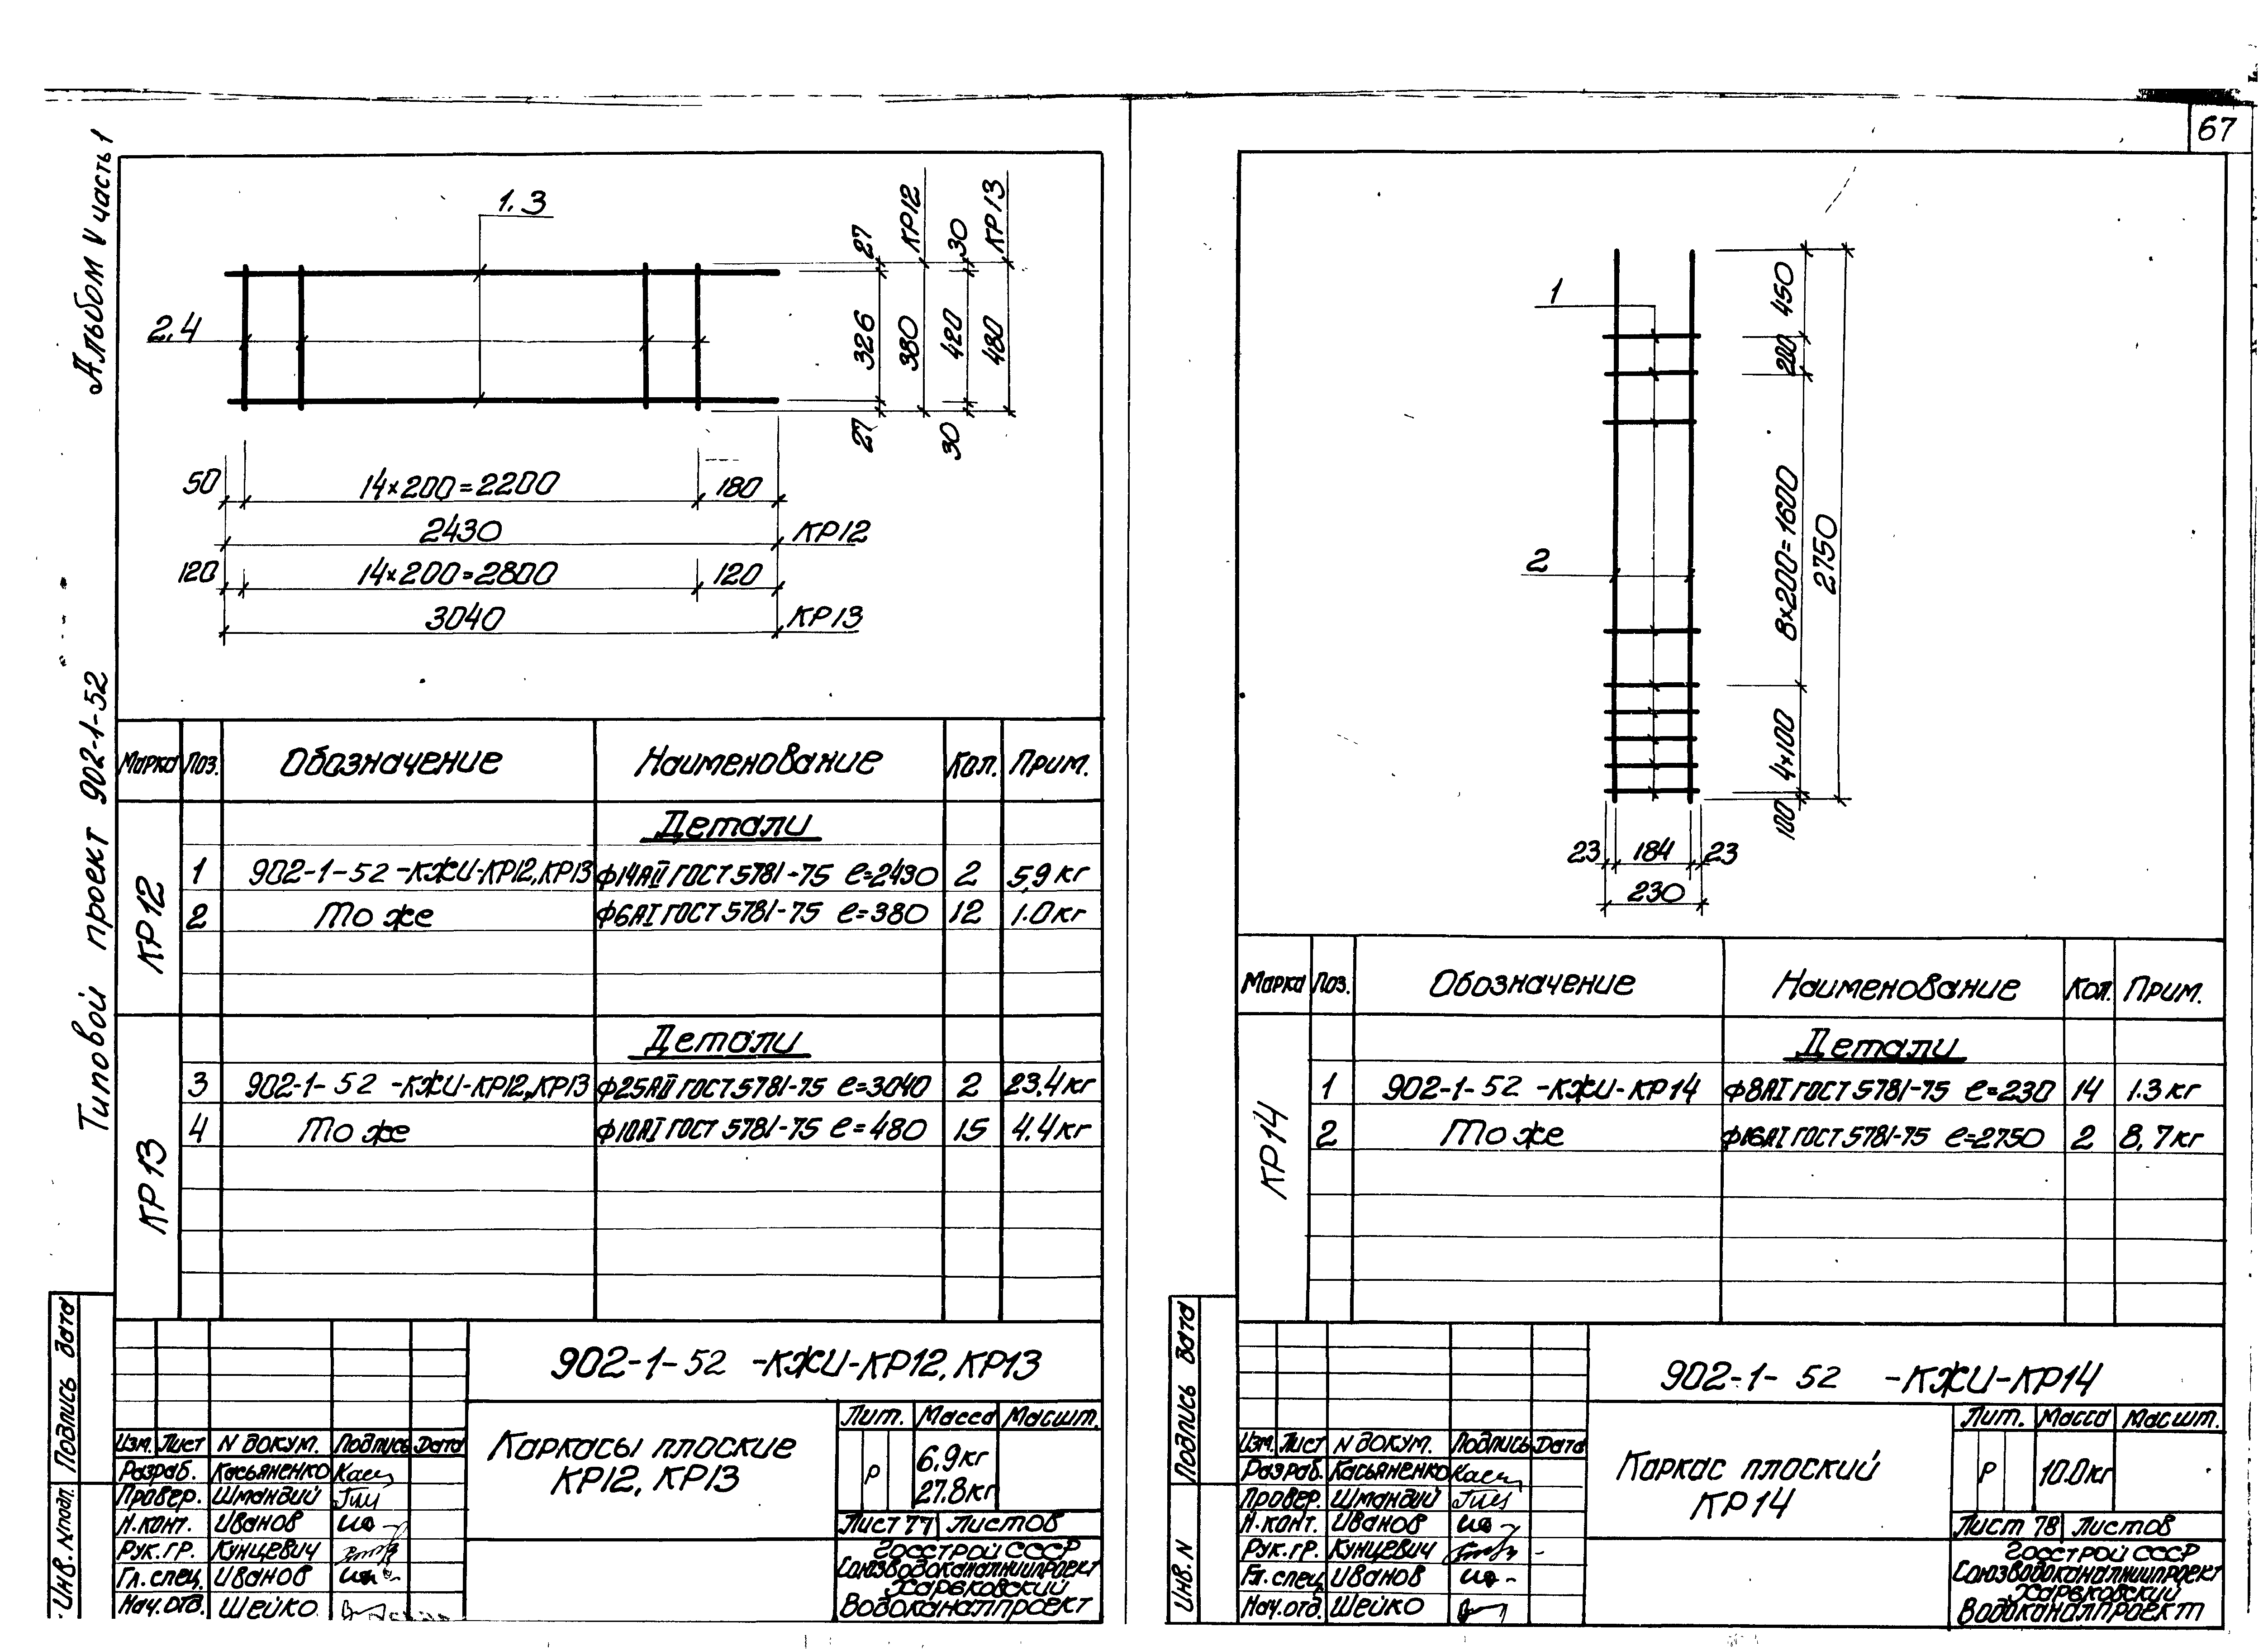 67
Альбом V часть 1
Типовой проект 902-1-52
1.3
2.4
27
КР12
30
КР13
326
380
420
480
27
30
50
14×200=2200
180
2430
КР12
120
14×200=2800
120
3040
КР13
Марка Поз. Обозначение Наименование Кол. Прим.
КР12
Детали
1 902-1-52 -КЖИ-КР12,КР13 ф14АII ГОСТ 5781-75 ℓ=2430 2 5,9 кг
2 То же ф6АI ГОСТ 5781-75 ℓ=380 12 1.0 кг
КР13
Детали
3 902-1-52 -КЖИ-КР12,КР13 ф25АII ГОСТ 5781-75 ℓ=3040 2 23,4 кг
4 То же ф10АI ГОСТ 5781-75 ℓ=480 15 4.4 кг
902-1-52 -КЖИ-КР12, КР13
Каркасы плоские
КР12, КР13
Лит. Масса Масшт.
Р 6,9 кг
27.8 кг
Лист 77 Листов
Госстрой СССР
Союзводоканалниипроект
Харьковский
Водоканалпроект
Изм. Лист N докум. Подпись Дата
Разраб. Касьяненко
Провер. Шмандий
Н.конт. Иванов
Рук.гр. Кунцевич
Гл.спец. Иванов
Нач.отд. Шейко
Инв. N подл. Подпись Дата
1
2
450
200
8×200=1600
2750
4×100
100
23 184 23
230
Марка Поз. Обозначение Наименование Кол. Прим.
КР14
Детали
1 902-1-52 -КЖИ-КР14 ф8АI ГОСТ 5781-75 ℓ=230 14 1.3 кг
2 То же ф16АI ГОСТ 5781-75 ℓ=2750 2 8,7 кг
902-1-52 -КЖИ-КР14
Каркас плоский
КР14
Лит. Масса Масшт.
Р 10.0 кг
Лист 78 Листов
Госстрой СССР
Союзводоканалниипроект
Харьковский
Водоканалпроект
Изм. Лист N докум. Подпись Дата
Разраб. Касьяненко
Провер. Шмандий
Н.конт. Иванов
Рук.гр. Кунцевич
Гл.спец. Иванов
Нач.отд. Шейко
Инв. N Подпись Дата